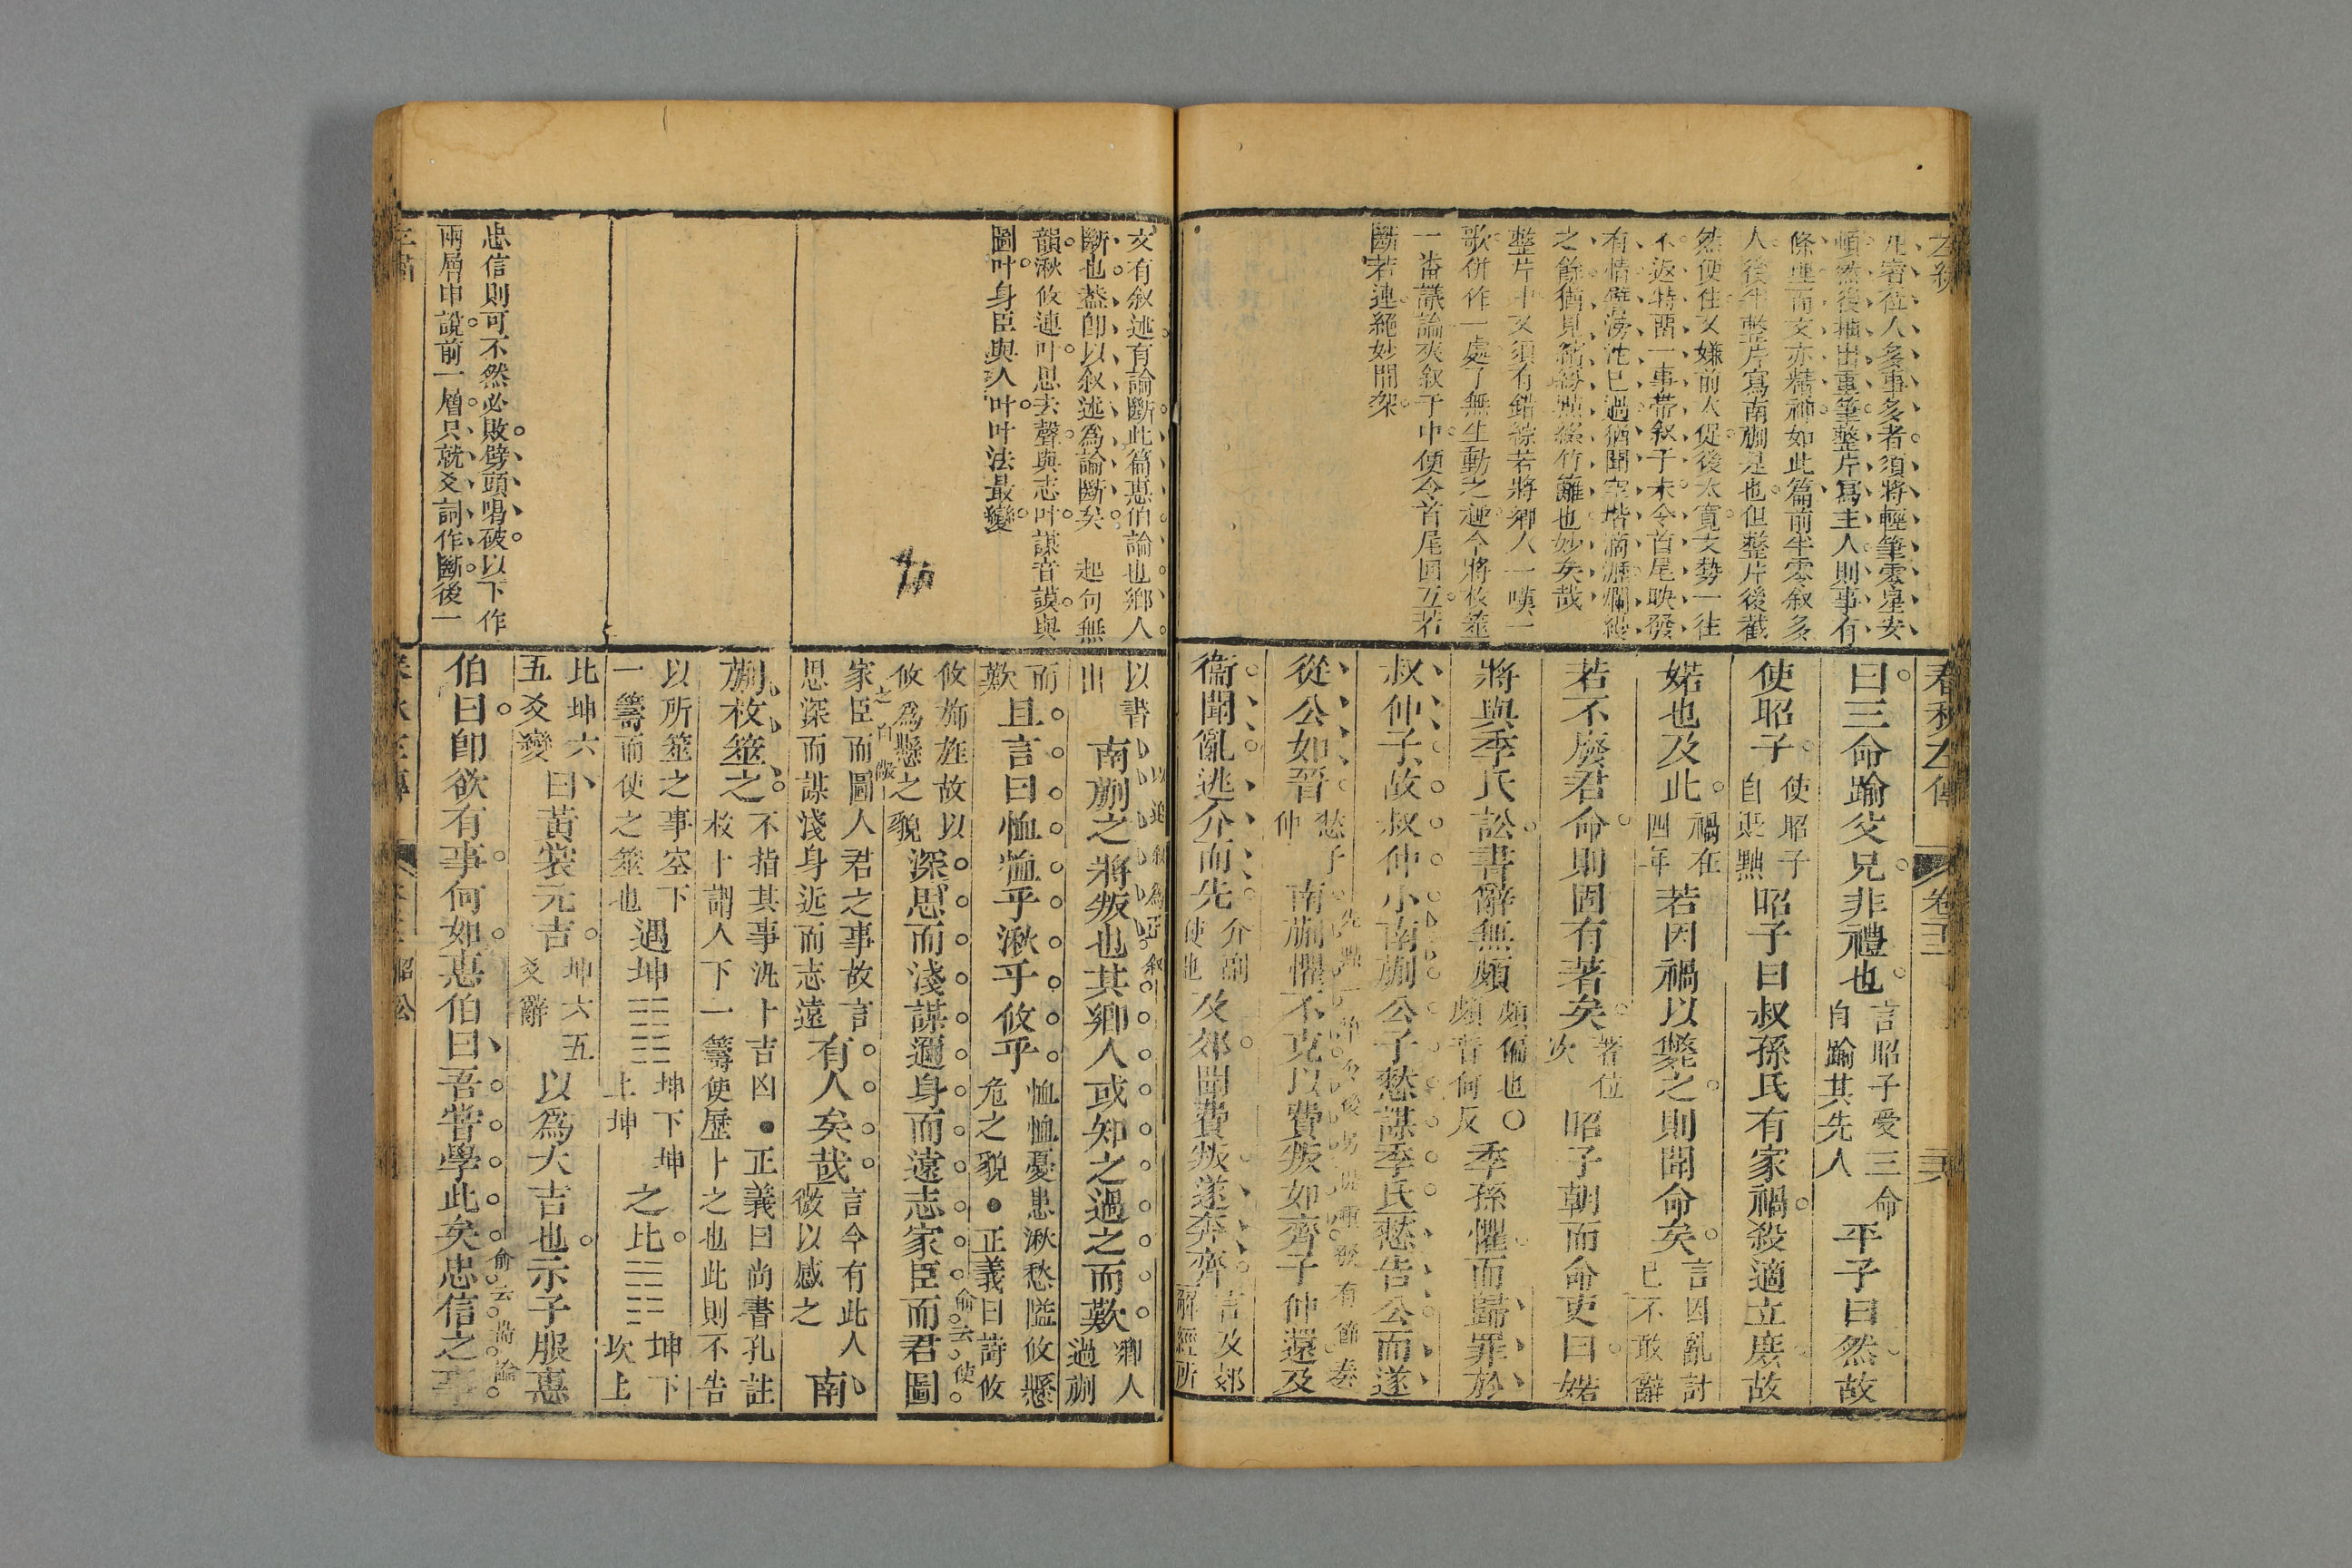 凡審位人多事多者須將輕筆零星安
頓然後抽出重筆整片寫主人則事有
條理而文亦精神如此篇前半零叙多
人後半整片寫南蒯是也但整片後截
然便住又嫌前太促後太寬文勢一往
不返特留一事帶叙于末令首尾映發
有情
之餘猶見
整片中又須有錯綜若將鄉人一嘆一
歌併作一處了無生動之趣今將枚筮
一番議論夾叙于中便令首尾回互若
斷若連絕妙間架
春秋左傳
曰三命踰父兄非禮也言昭子受三命自踰其先人平子曰然故
使昭子使昭子自貶黜昭子曰叔孫氏有家禍殺適立庶故
婼也及此禍在四年若因禍以斃之則聞命矣言因亂討己不敢辭
若不廢君命則固有著矣著位次昭子朝而命吏曰婼
將與季氏訟書辭無頗頗偏也○頗音何反季孫懼而歸罪於
叔仲子故叔仲小南蒯公子憖謀季氏憖告公而遂
從公如晉憖子仲南蒯懼不克以費叛如齊子仲還及
衞聞亂逃介而先介副使也及郊聞費叛遂奔齊言及郊解經所
文有叙述有論斷此篇惠伯論也鄉人
斷也蓋即以叙述爲論斷矣 起句無
韻湫攸連叶思去聲與志叶謀音謨與
圖叶身臣與人叶叶法最變
忠信則可不然必敗劈頭喝破以下作
兩層申說前一層只就爻詞作斷後一
以書出南蒯之將叛也其鄉人或知之過之而歎鄉人過蒯
而歎且言曰恤恤乎湫乎攸乎恤恤憂患湫愁隘攸懸危之貌●正義曰詩攸
攸旆旌故以攸爲懸之貌深思而淺謀邇身而遠志家臣而君圖
家臣而圖人君之事故言思深而謀淺身近而志遠有人矣哉言今有此人微以感之南
蒯枚筮之不指其事汎卜吉凶●正義曰尚書孔註枚十謂人下一籌使歷卜之也此則不告
以所筮之事空下一籌而使之筮也遇坤坤下坤上坤之比坤下坎上
比坤六五爻變曰黃裳元吉坤六五爻辭以爲大吉也示子服惠
伯曰卽欲有事何如惠伯曰吾嘗學此矣忠信之事